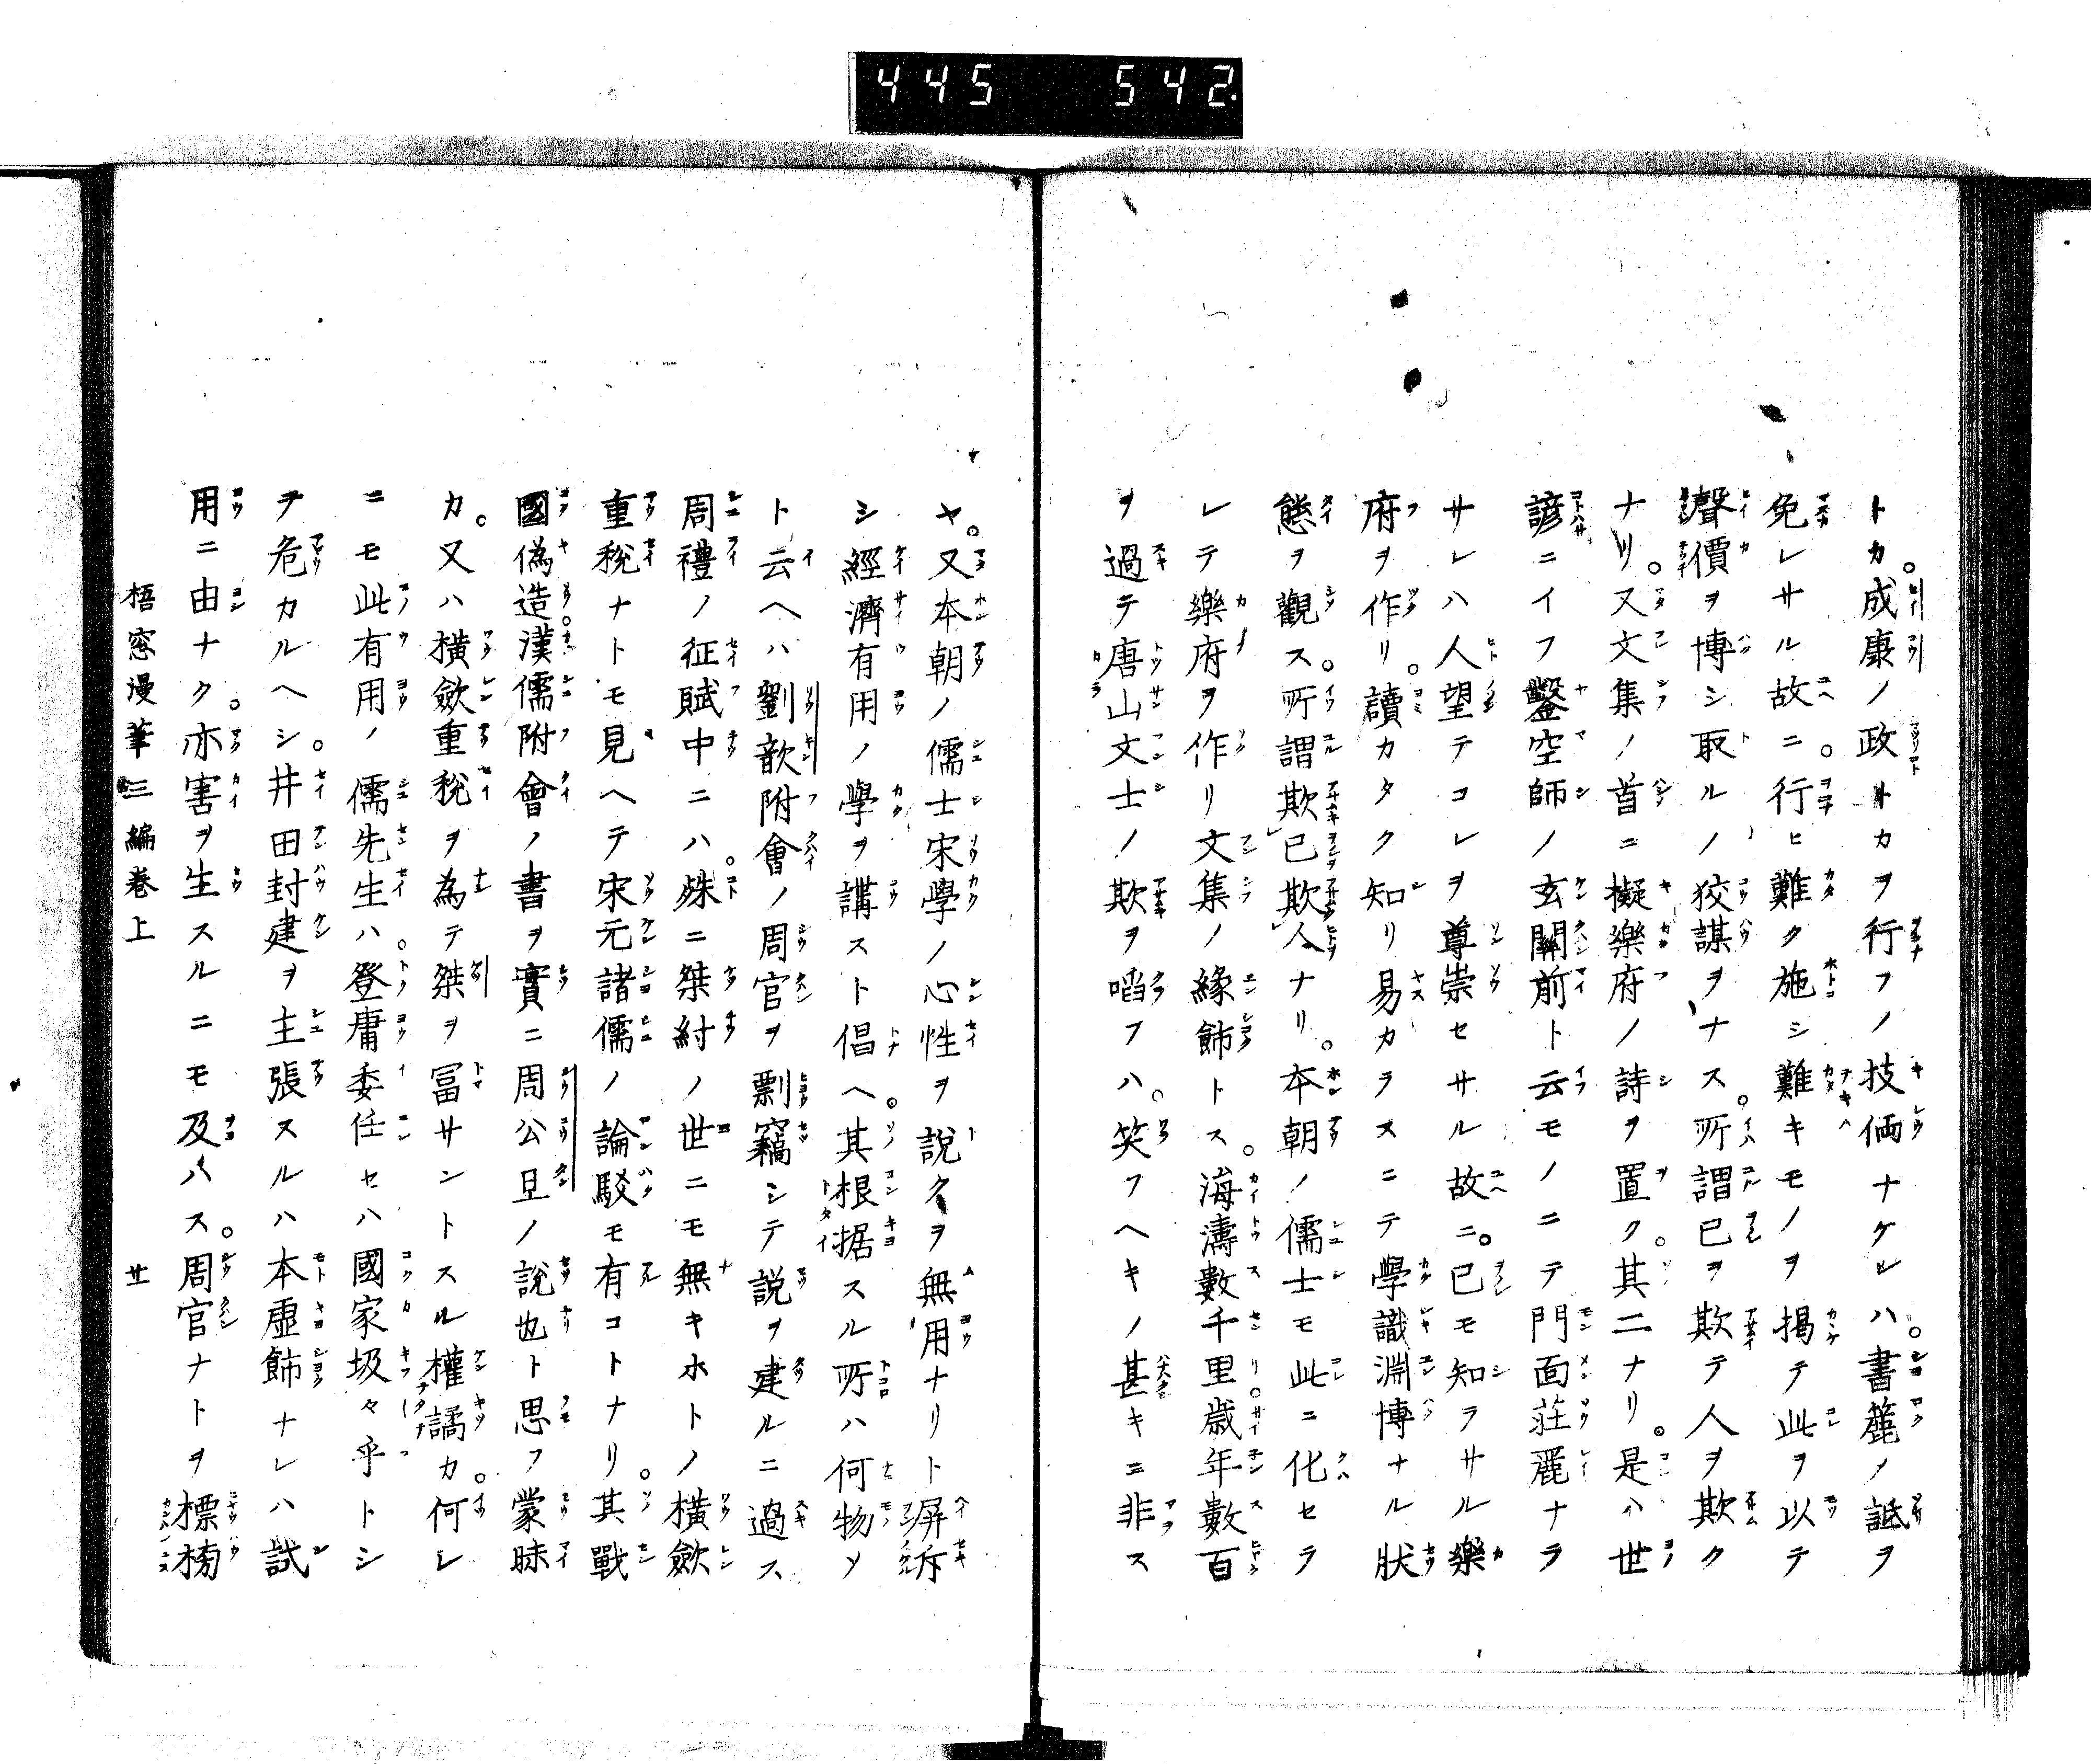 445 542.
トカ。成康ノ政トカヲ行フノ技倆ナケレハ。書簏ノ詆ヲ
免レサル故ニ。行ヒ難ク施シ難キモノヲ揭テ此ヲ以テ
聲價ヲ博シ取ルノ狡謀ヲナス。所謂已ヲ欺テ人ヲ欺ク
ナリ。又文集ノ首ニ擬樂府ノ詩ヲ置ク。其二ナリ。是ハ世
諺ニイフ鑿空師ノ玄關前ト云モノニテ門面莊麗ナラ
サレハ人望テコレヲ尊崇セサル故ニ。已モ知ラサル樂
府ヲ作リ。讀カタク知リ易カラスニテ學識淵博ナル狀
態ヲ觀ス。所謂欺已欺人ナリ。本朝ノ儒士モ此ニ化セラ
レテ樂府ヲ作リ文集ノ緣飾トス。海濤數千里。歲年數百
ヲ過テ唐山文士ノ欺ヲ啗フハ。笑フヘキノ甚キニ非ス
ヤ。又本朝ノ儒士宋學ノ心性ヲ說クヲ無用ナリト屏斥
シ經濟有用ノ學ヲ講スト倡ヘ。其根据スル所ハ何物ソ
ト云ヘハ劉歆附會ノ周官ヲ剽竊シテ説ヲ建ルニ過ス
周禮ノ征賦中ニハ。殊ニ桀紂ノ世ニモ無キホトノ橫歛
重稅ナトモ見ヘテ宋元諸儒ノ論駁モ有コトナリ。其戰
國偽造。漢儒附會ノ書ヲ實ニ周公旦ノ說也ト思フ蒙昧
カ。又ハ橫歛重稅ヲ為テ桀ヲ冨サントスル權譎カ。何レ
ニモ此有用ノ儒先生ハ。登庸委任セハ國家圾々乎トシ
ヲ危カルヘシ。井田封建ヲ主張スルハ本虛飾ナレハ試
用ニ由ナク。亦害ヲ生スルニモ及ハス。周官ナトヲ標榜
梧窓漫筆三編卷上 廿